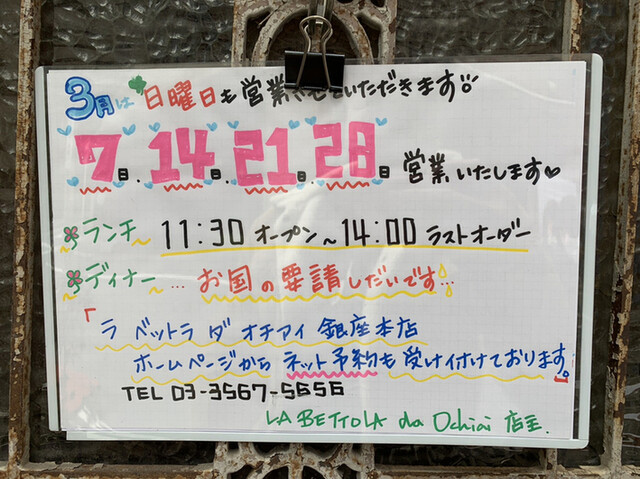 3月は日曜日も営業させていただきます
7日.14日.21日.28日 営業いたします♡
ランチ～ 11:30 オープン～14:00 ラストオーダー
ディナー～ … お国の要請しだいです…
「ラ ベットラ ダ オチアイ 銀座本店
ホームページから ネット予約も受け付けております。
TEL 03-3567-5656
LA BETTOLA da Ochiai 店主.